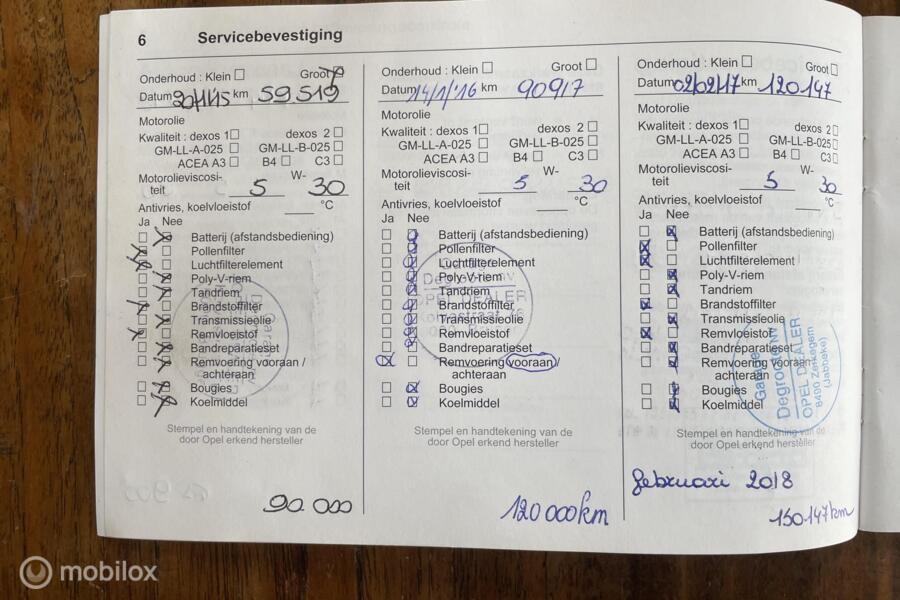 6 Servicebevestiging
Onderhoud : Klein Groot
Datum 20/1/15 km 59519
Motorolie
Kwaliteit : dexos 1 dexos 2
GM-LL-A-025 GM-LL-B-025
ACEA A3 B4 C3
Motorolieviscosi-
teit 5 W- 30
Antivries, koelvloeistof °C
Ja Nee
Batterij (afstandsbediening)
Pollenfilter
Luchtfilterelement
Poly-V-riem
Tandriem
Brandstoffilter
Transmissieolie
Remvloeistof
Bandreparatieset
Remvoering vooraan /
achteraan
Bougies
Koelmiddel
Stempel en handtekening van de
door Opel erkend hersteller
90.000
Onderhoud : Klein Groot
Datum 14/1/'16 km 90917
Motorolie
Kwaliteit : dexos 1 dexos 2
GM-LL-A-025 GM-LL-B-025
ACEA A3 B4 C3
Motorolieviscosi-
teit 5 W- 30
Antivries, koelvloeistof °C
Ja Nee
Batterij (afstandsbediening)
Pollenfilter
Luchtfilterelement
Poly-V-riem
Tandriem
Brandstoffilter
Transmissieolie
Remvloeistof
Bandreparatieset
Remvoering vooraan /
achteraan
Bougies
Koelmiddel
Degroote nv
OPEL DEALER
Stempel en handtekening van de
door Opel erkend hersteller
120 000km
Onderhoud : Klein Groot
Datum 02/02/17 km 120147
Motorolie
Kwaliteit : dexos 1 dexos 2
GM-LL-A-025 GM-LL-B-025
ACEA A3 B4 C3
Motorolieviscosi-
teit 5 W- 30
Antivries, koelvloeistof °C
Ja Nee
Batterij (afstandsbediening)
Pollenfilter
Luchtfilterelement
Poly-V-riem
Tandriem
Brandstoffilter
Transmissieolie
Remvloeistof
Bandreparatieset
Remvoering vooraan /
achteraan
Bougies
Koelmiddel
Garage
Degroote NV
OPEL DEALER
8490 Zerkegem
(Jabbeke)
Stempel en handtekening van de
door Opel erkend hersteller
februari 2018
150.147km
mobilox